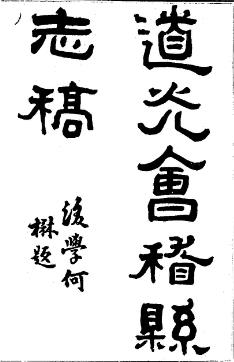 道光會稽縣
志稿
後學何
楙題